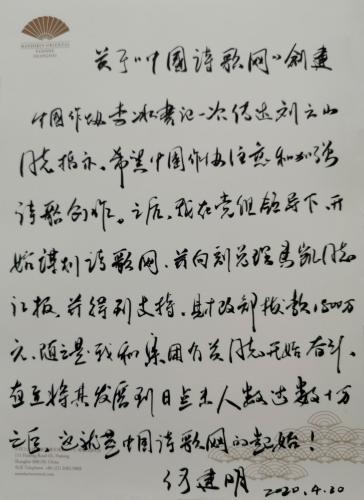 MANDARIN ORIENTAL
PUDONG
SHANGHAI
关于“中国诗歌网”创建
中国作协李冰书记一次传达刘云山
同志指示，希望中国作协注意和加强
诗歌创作。之后，我在党组领导下，开
始谋划诗歌网，并向刘总理马凯同志
汇报，并得到支持，财政部拨款1500万
元，随之是我和集团有关同志开始奋斗，
直至将其发展到日点击人数达数十万
之巨，这就是中国诗歌网的起始！
何建明 2020.4.30
111 Pudong Road (S), Pudong
Shanghai 200120, China